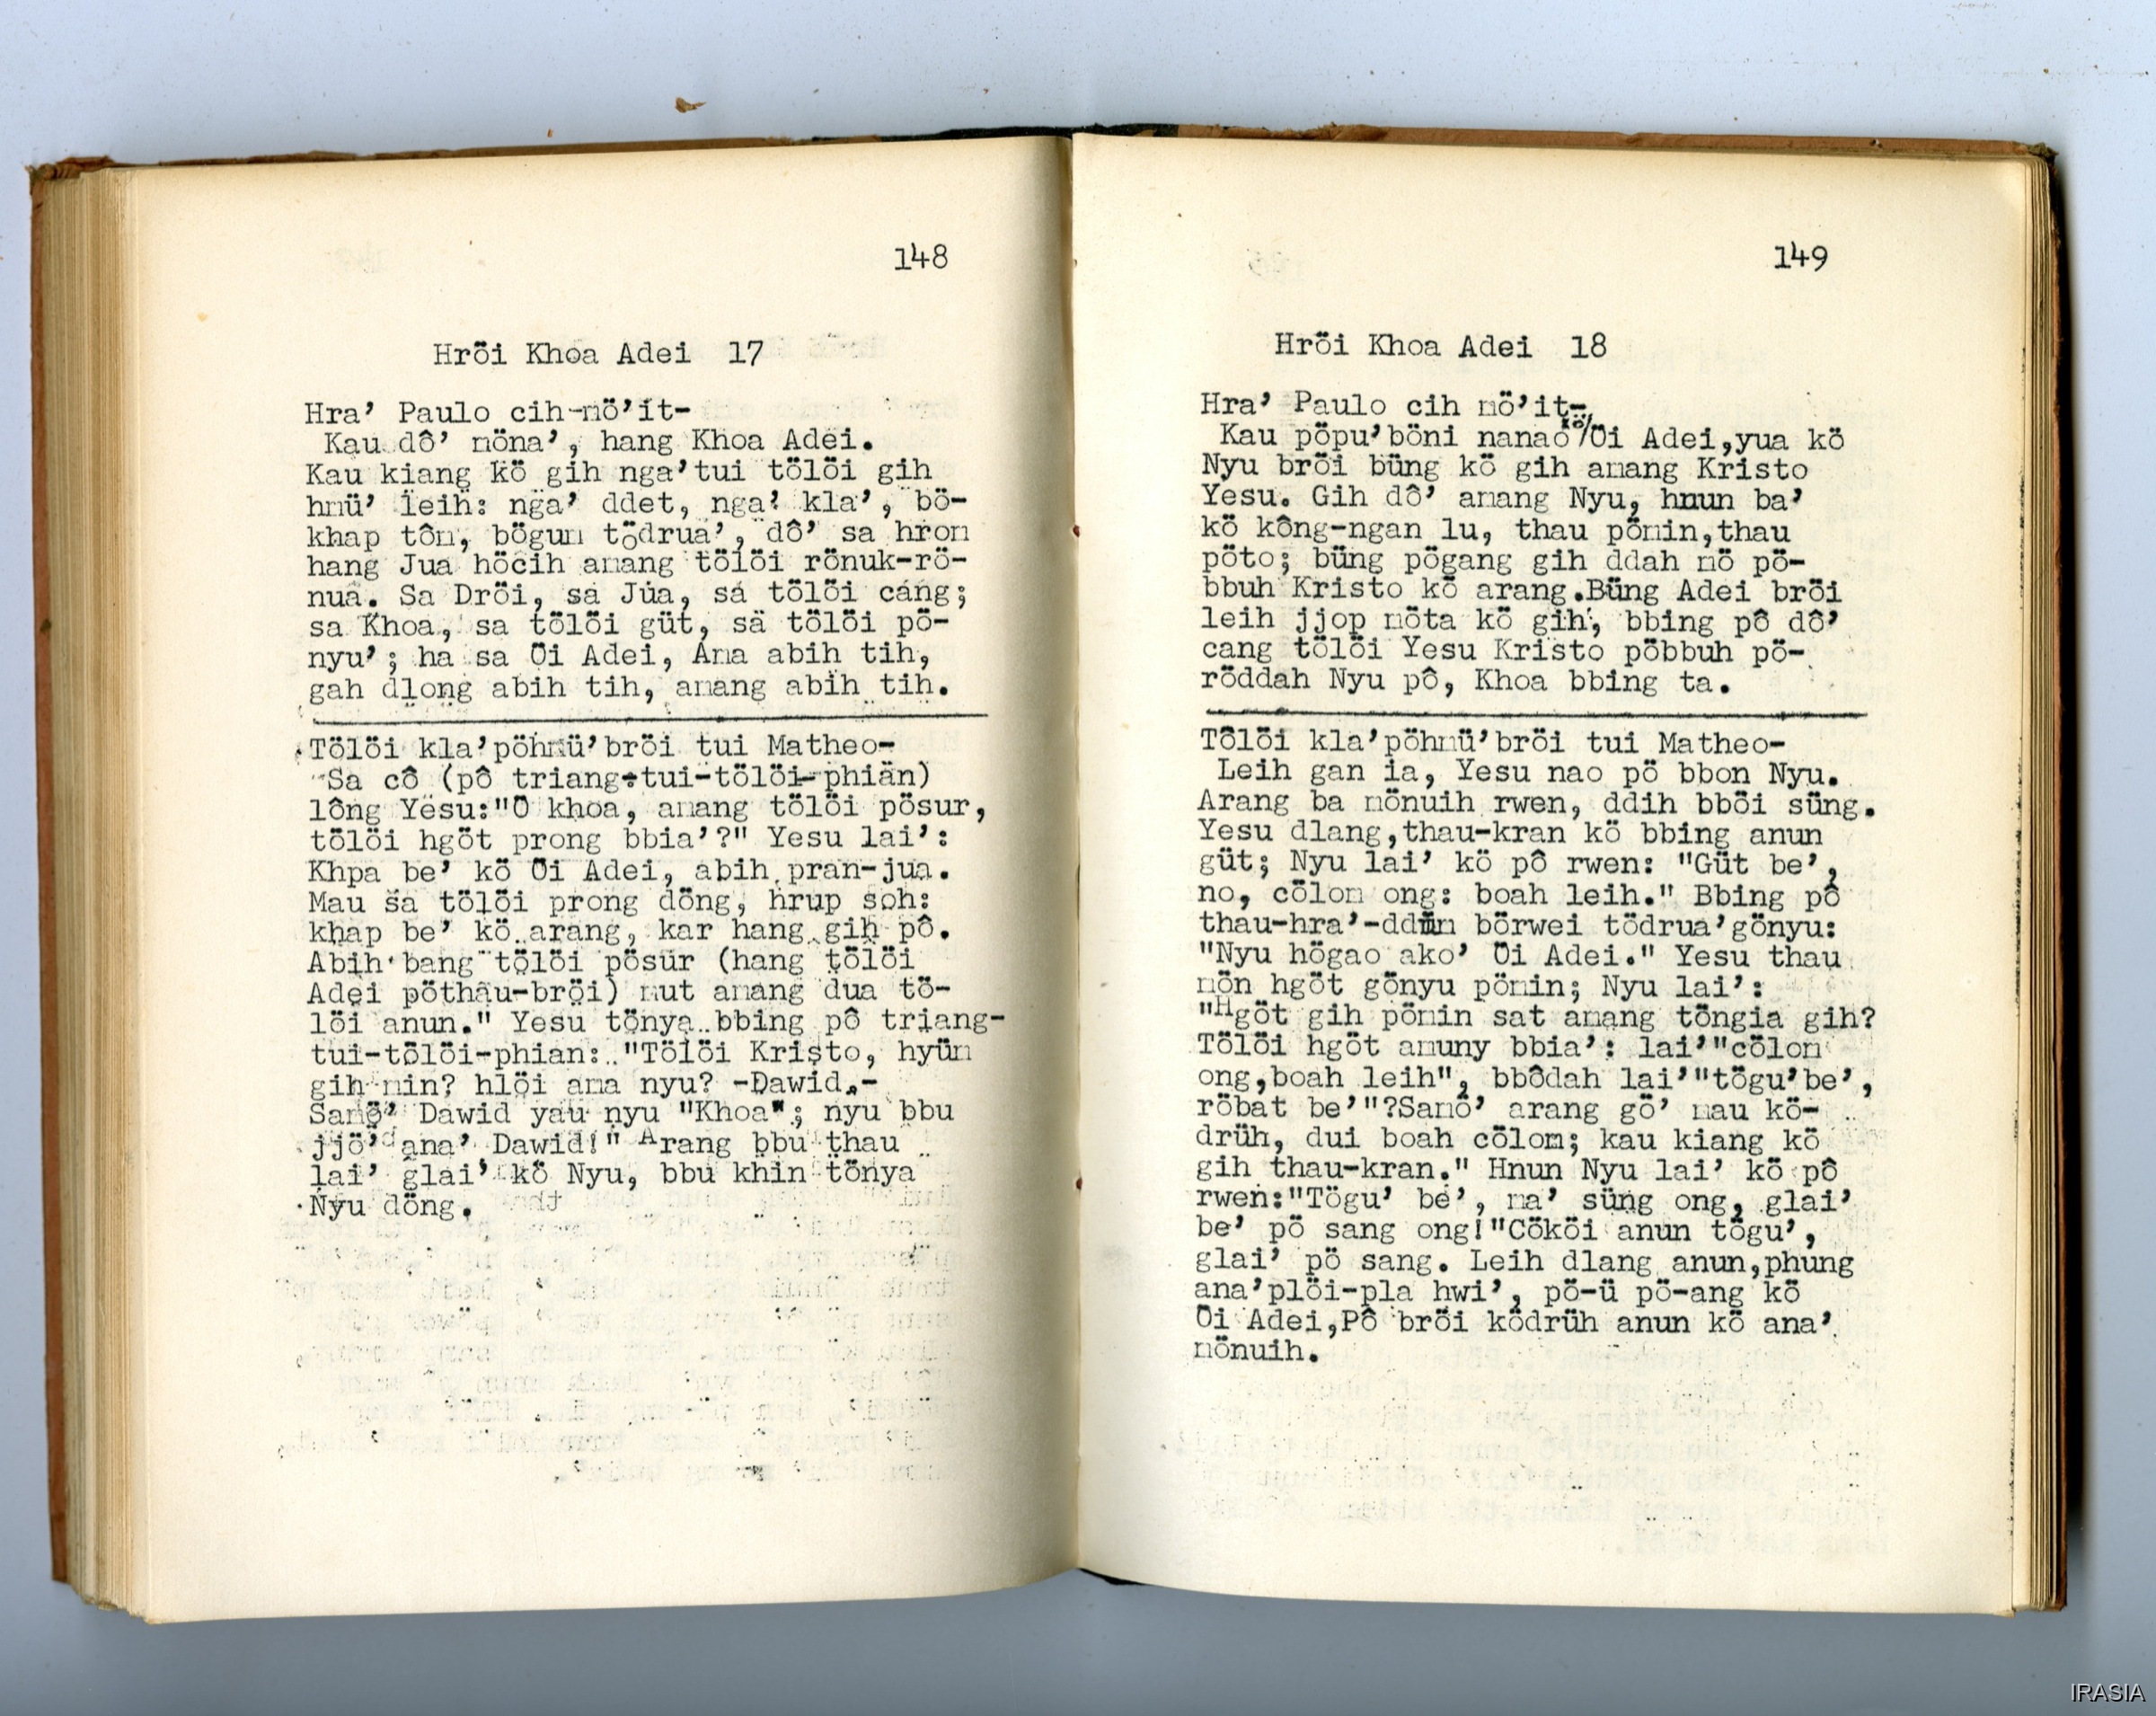 148
Hröi Khoa Adei 17
Hra’ Paulo cih mö’it-
Kau dô’ möna’, hang Khoa Adei.
Kau kiang kö gih nga’tui tölöi gih
hmü’ leih: nga’ ddet, nga’ kla’, bö-
khap tôm, bögum tödrua’, dô’ sa hrom
hang Jua höcih amang tölöi rönuk-rö-
nua. Sa Dröi, sa Jua, sa tölöi cang;
sa Khoa, sa tölöi güt, sa tölöi pö-
nyu’; ha sa Öi Adei, Ama abih tih,
gah dlong abih tih, amang abih tih.
Tölöi kla’pöhmü’bröi tui Matheo-
Sa cô (pô triang-tui-tölöi-phiän)
lông Yesu:"O khoa, amang tölöi pösur,
tölöi hgöt prong bbia’?" Yesu lai’:
Khpa be’ kö Öi Adei, abih pran-jua.
Mau sa tölöi prong döng, hrup soh:
khap be’ kö arang, kar hang gih pô.
Abih bang tölöi pösur (hang tölöi
Adei pöthâu-bröi) mut amang dua tö-
löi anun." Yesu tönya bbing pô triang-
tui-tölöi-phian: "Tölöi Kristo, hyüm
gih min? hlöi ama nyu? -Dawid.-
Samö’ Dawid yau nyu "Khoa"; nyu bbu
jjö’ ana’ Dawid!" Arang bbu thau
lai’ glai’ kö Nyu, bbu khin tönya
Nyu döng.
149
Hröi Khoa Adei 18
Hra’ Paulo cih mö’it-
Kau pöpu’böni nanao kö/Öi Adei,yua kö
Nyu bröi büng kö gih amang Kristo
Yesu. Gih dô’ amang Nyu, hnun ba’
kö kông-ngan lu, thau pömin,thau
pöto; büng pögang gih ddah mö pö-
bbuh Kristo kö arang.Büng Adei bröi
leih jjop möta kö gih, bbing pô dô’
cang tölöi Yesu Kristo pöbbuh pö-
röddah Nyu pô, Khoa bbing ta.
Tölöi kla’pöhmü’bröi tui Matheo-
Leih gan ia, Yesu nao pö bbon Nyu.
Arang ba mönuih rwen, ddih bböi süng.
Yesu dlang,thau-kran kö bbing anun
güt; Nyu lai’ kö pô rwen: "Güt be’,
mo, cölom ong: boah leih." Bbing pô
thau-hra’-ddüm börwei tödrua’gönyu:
"Nyu högao ako’ Öi Adei." Yesu thau
mön hgöt gönyu pömin; Nyu lai’:
"Hgöt gih pömin sat amang töngia gih?
Tölöi hgöt amuny bbia’: lai’"cölom
ong,boah leih", bbôdah lai’"tögu’be’,
röbat be’"?Samö’ arang gö’ mau kö-
drüh, dui boah cölom; kau kiang kö
gih thau-kran." Hnun Nyu lai’ kö pô
rwen:"Tögu’ be’, ma’ süng ong, glai’
be’ pö sang ong!"Cököi anun tögu’,
glai’ pö sang. Leih dlang anun,phung
ana’plöi-pla hwi’, pö-ü pö-ang kö
Öi Adei,Pô bröi ködrüh anun kö ana’
mönuih.
IRASIA